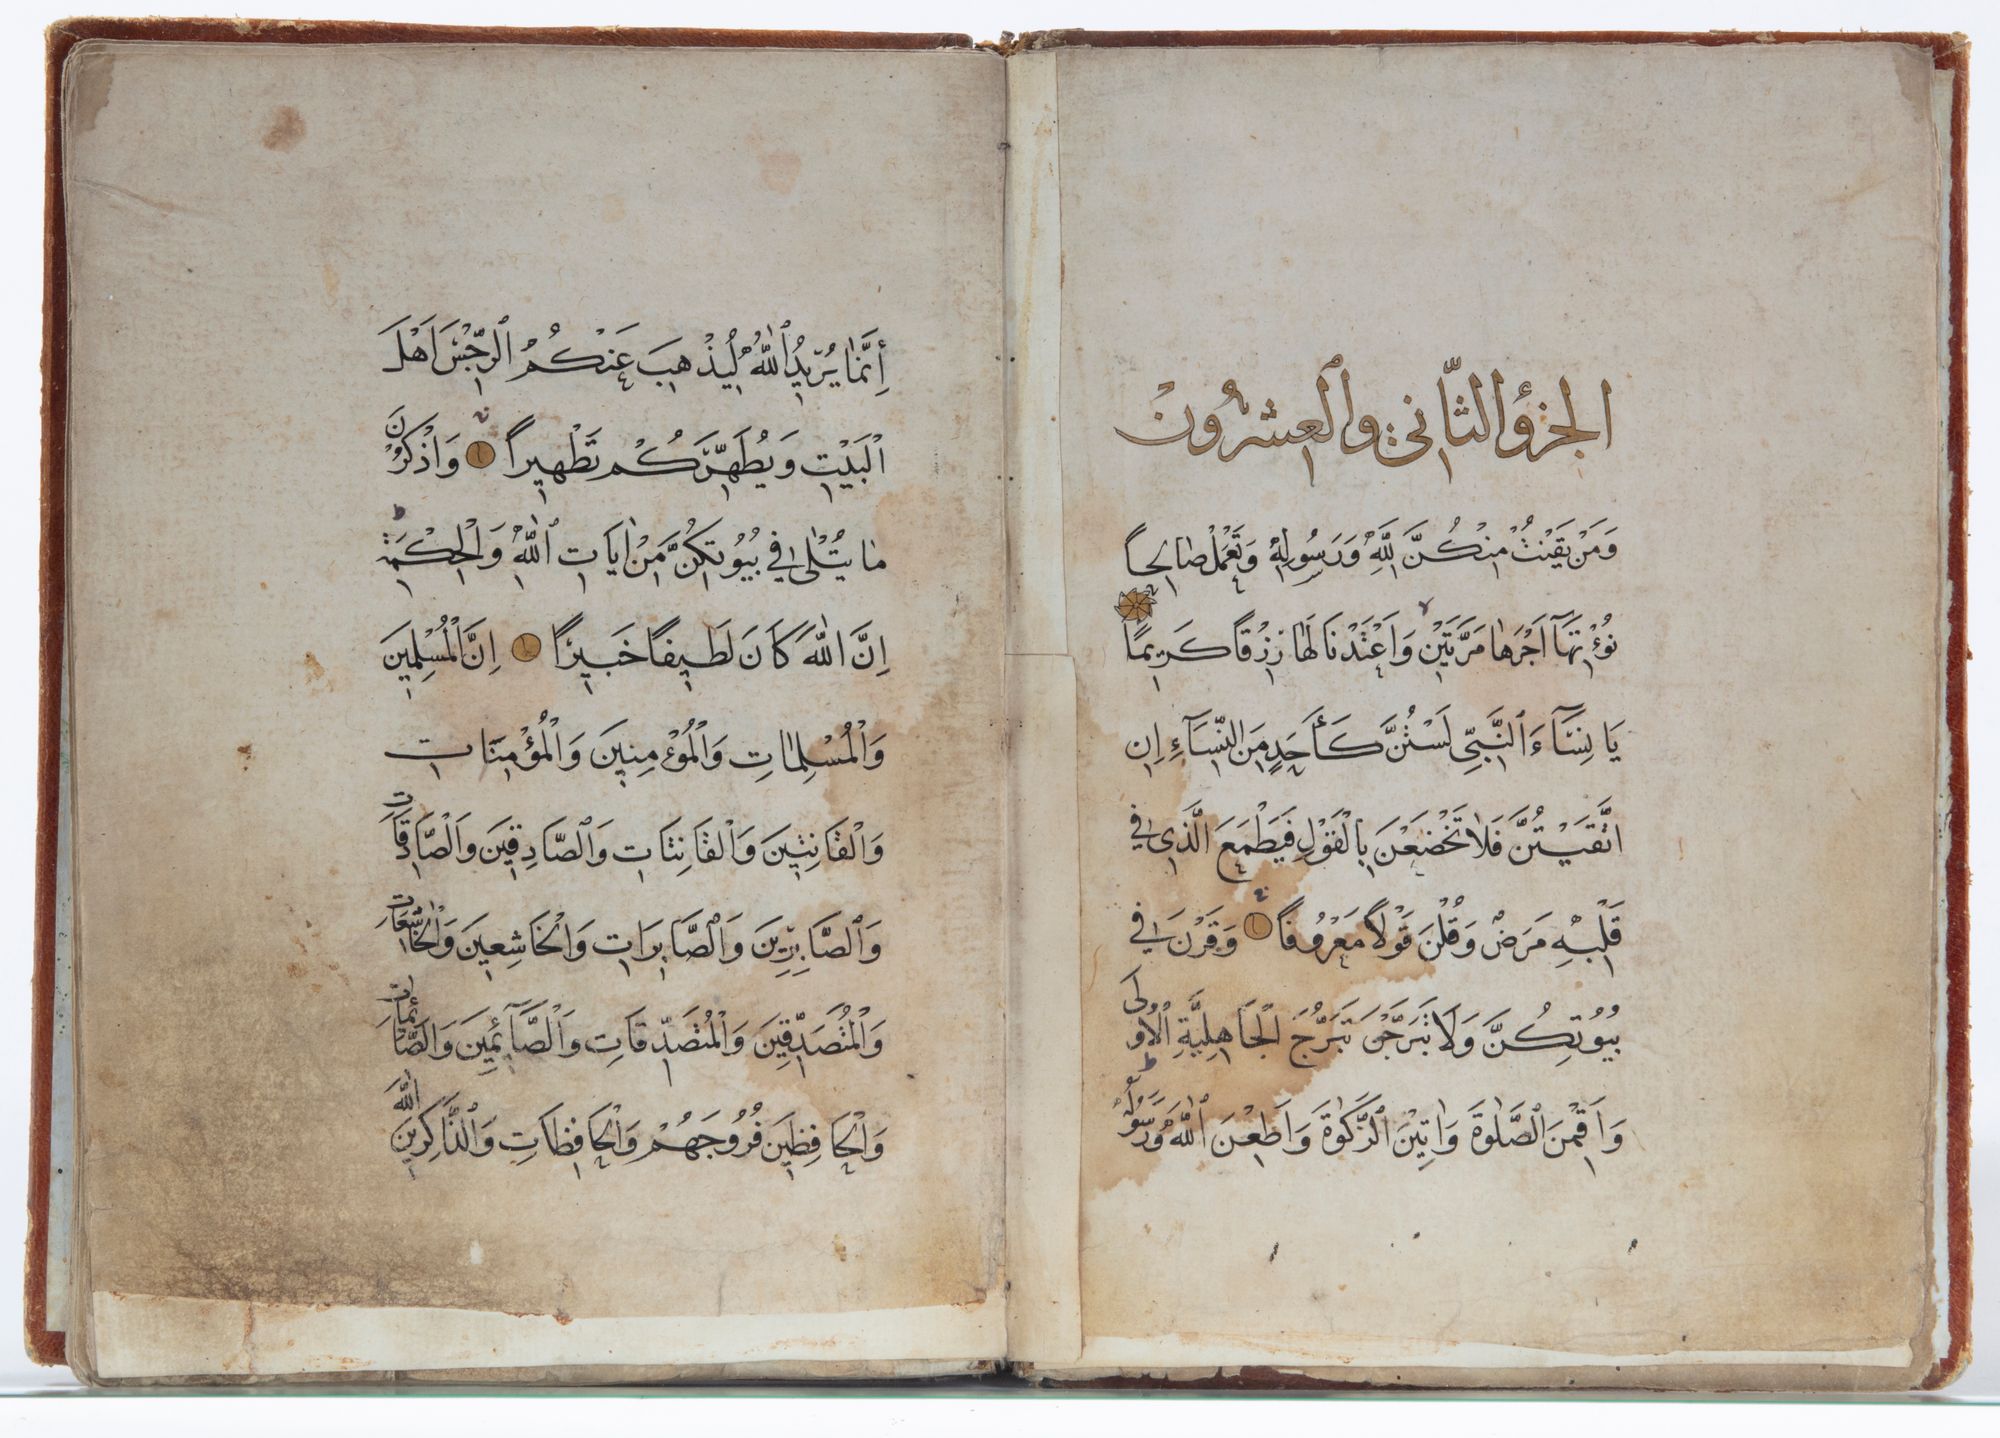 الجزؤ الثاني والعشرون
وَمَنْ يَقْنُتْ مِنْكُنَّ لِلَّهِ وَرَسُولِهِ وَتَعْمَلْ صَالِحاً
نُؤْتِهَآ اَجْرَهَا مَرَّتَيْنِ وَاَعْتَدْنَا لَهَا رِزْقًا كَرِيمًا
يَا نِسَآءَ ٱلنَّبِيِّ لَسْتُنَّ كَأَحَدٍ مِنَ النِّسَآءِ اِنِ
اتَّقَيْتُنَّ فَلَا تَخْضَعْنَ بِالْقَوْلِ فَيَطْمَعَ الَّذِي فِي
قَلْبِهِ مَرَضٌ وَقُلْنَ قَوْلاً مَعْرُوفًا وَقَرْنَ فِي
بُيُوتِكُنَّ وَلَا تَبَرَّجْنَ تَبَرُّجَ الْجَاهِلِيَّةِ الْاُولَى
وَاَقِمْنَ الصَّلٰوةَ وَاٰتِينَ ٱلزَّكٰوةَ وَاَطِعْنَ ٱللّٰهَ وَرَسُولَهُ
إِنَّمَا يُرِيدُ ٱللّٰهُ لِيُذْهِبَ عَنْكُمُ ٱلرِّجْسَ اَهْلَ
الْبَيْتِ وَيُطَهِّرَكُمْ تَطْهِيراً وَاذْكُرْنَ
مَا يُتْلٰى فِي بُيُوتِكُنَّ مِنْ اٰيَاتِ ٱللّٰهِ وَالْحِكْمَةِ
اِنَّ اللّٰهَ كَانَ لَطِيفًا خَبِيرًا اِنَّ الْمُسْلِمِينَ
وَالْمُسْلِمَاتِ وَالْمُؤْمِنِينَ وَالْمُؤْمِنَاتِ
وَالْقَانِتِينَ وَالْقَانِتَاتِ وَالصَّادِقِينَ وَالصَّادِقَاتِ
وَالصَّابِرِينَ وَالصَّابِرَاتِ وَالْخَاشِعِينَ وَالْخَاشِعَاتِ
وَالْمُتَصَدِّقِينَ وَالْمُتَصَدِّقَاتِ وَالصَّآئِمِينَ وَالصَّآئِمَاتِ
وَالْحَافِظِينَ فُرُوجَهُمْ وَالْحَافِظَاتِ وَالذَّاكِرِينَ اللّٰهَ